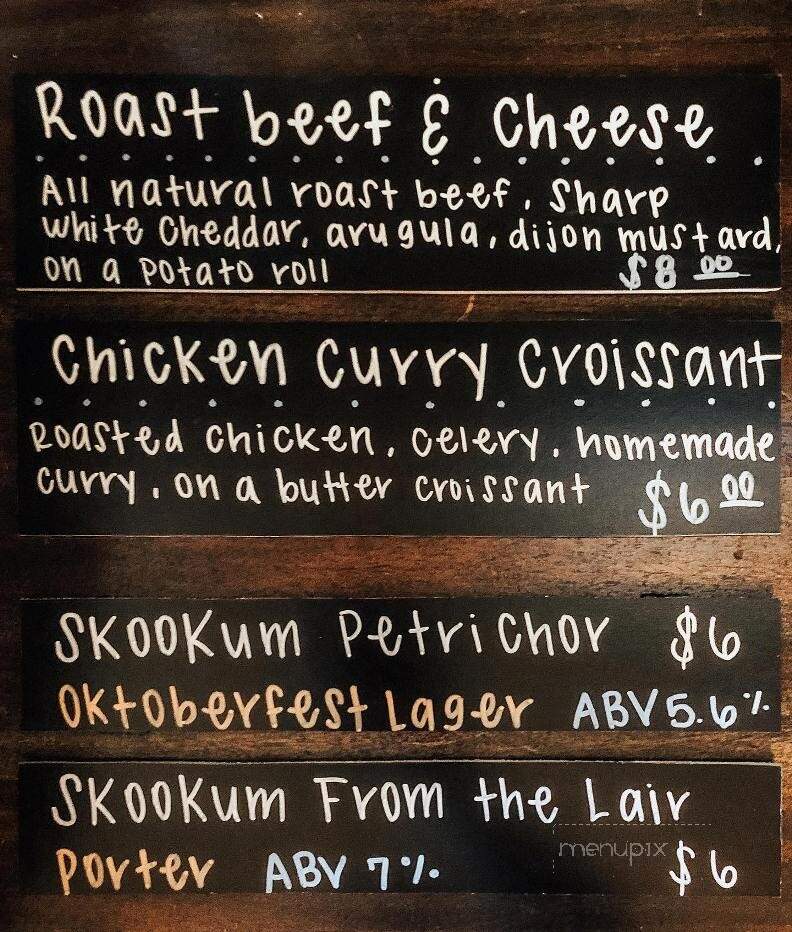 Roast beef & Cheese
All natural roast beef, Sharp
white cheddar, arugula, dijon mustard,
on a potato roll $8 00
Chicken Curry Croissant
Roasted chicken, celery, homemade
curry, on a butter croissant $6 00
SKOOKUM Petrichor $6
Oktoberfest Lager ABV 5.6%
SKOOKUM From the Lair
Porter ABV 7% $6
menupix